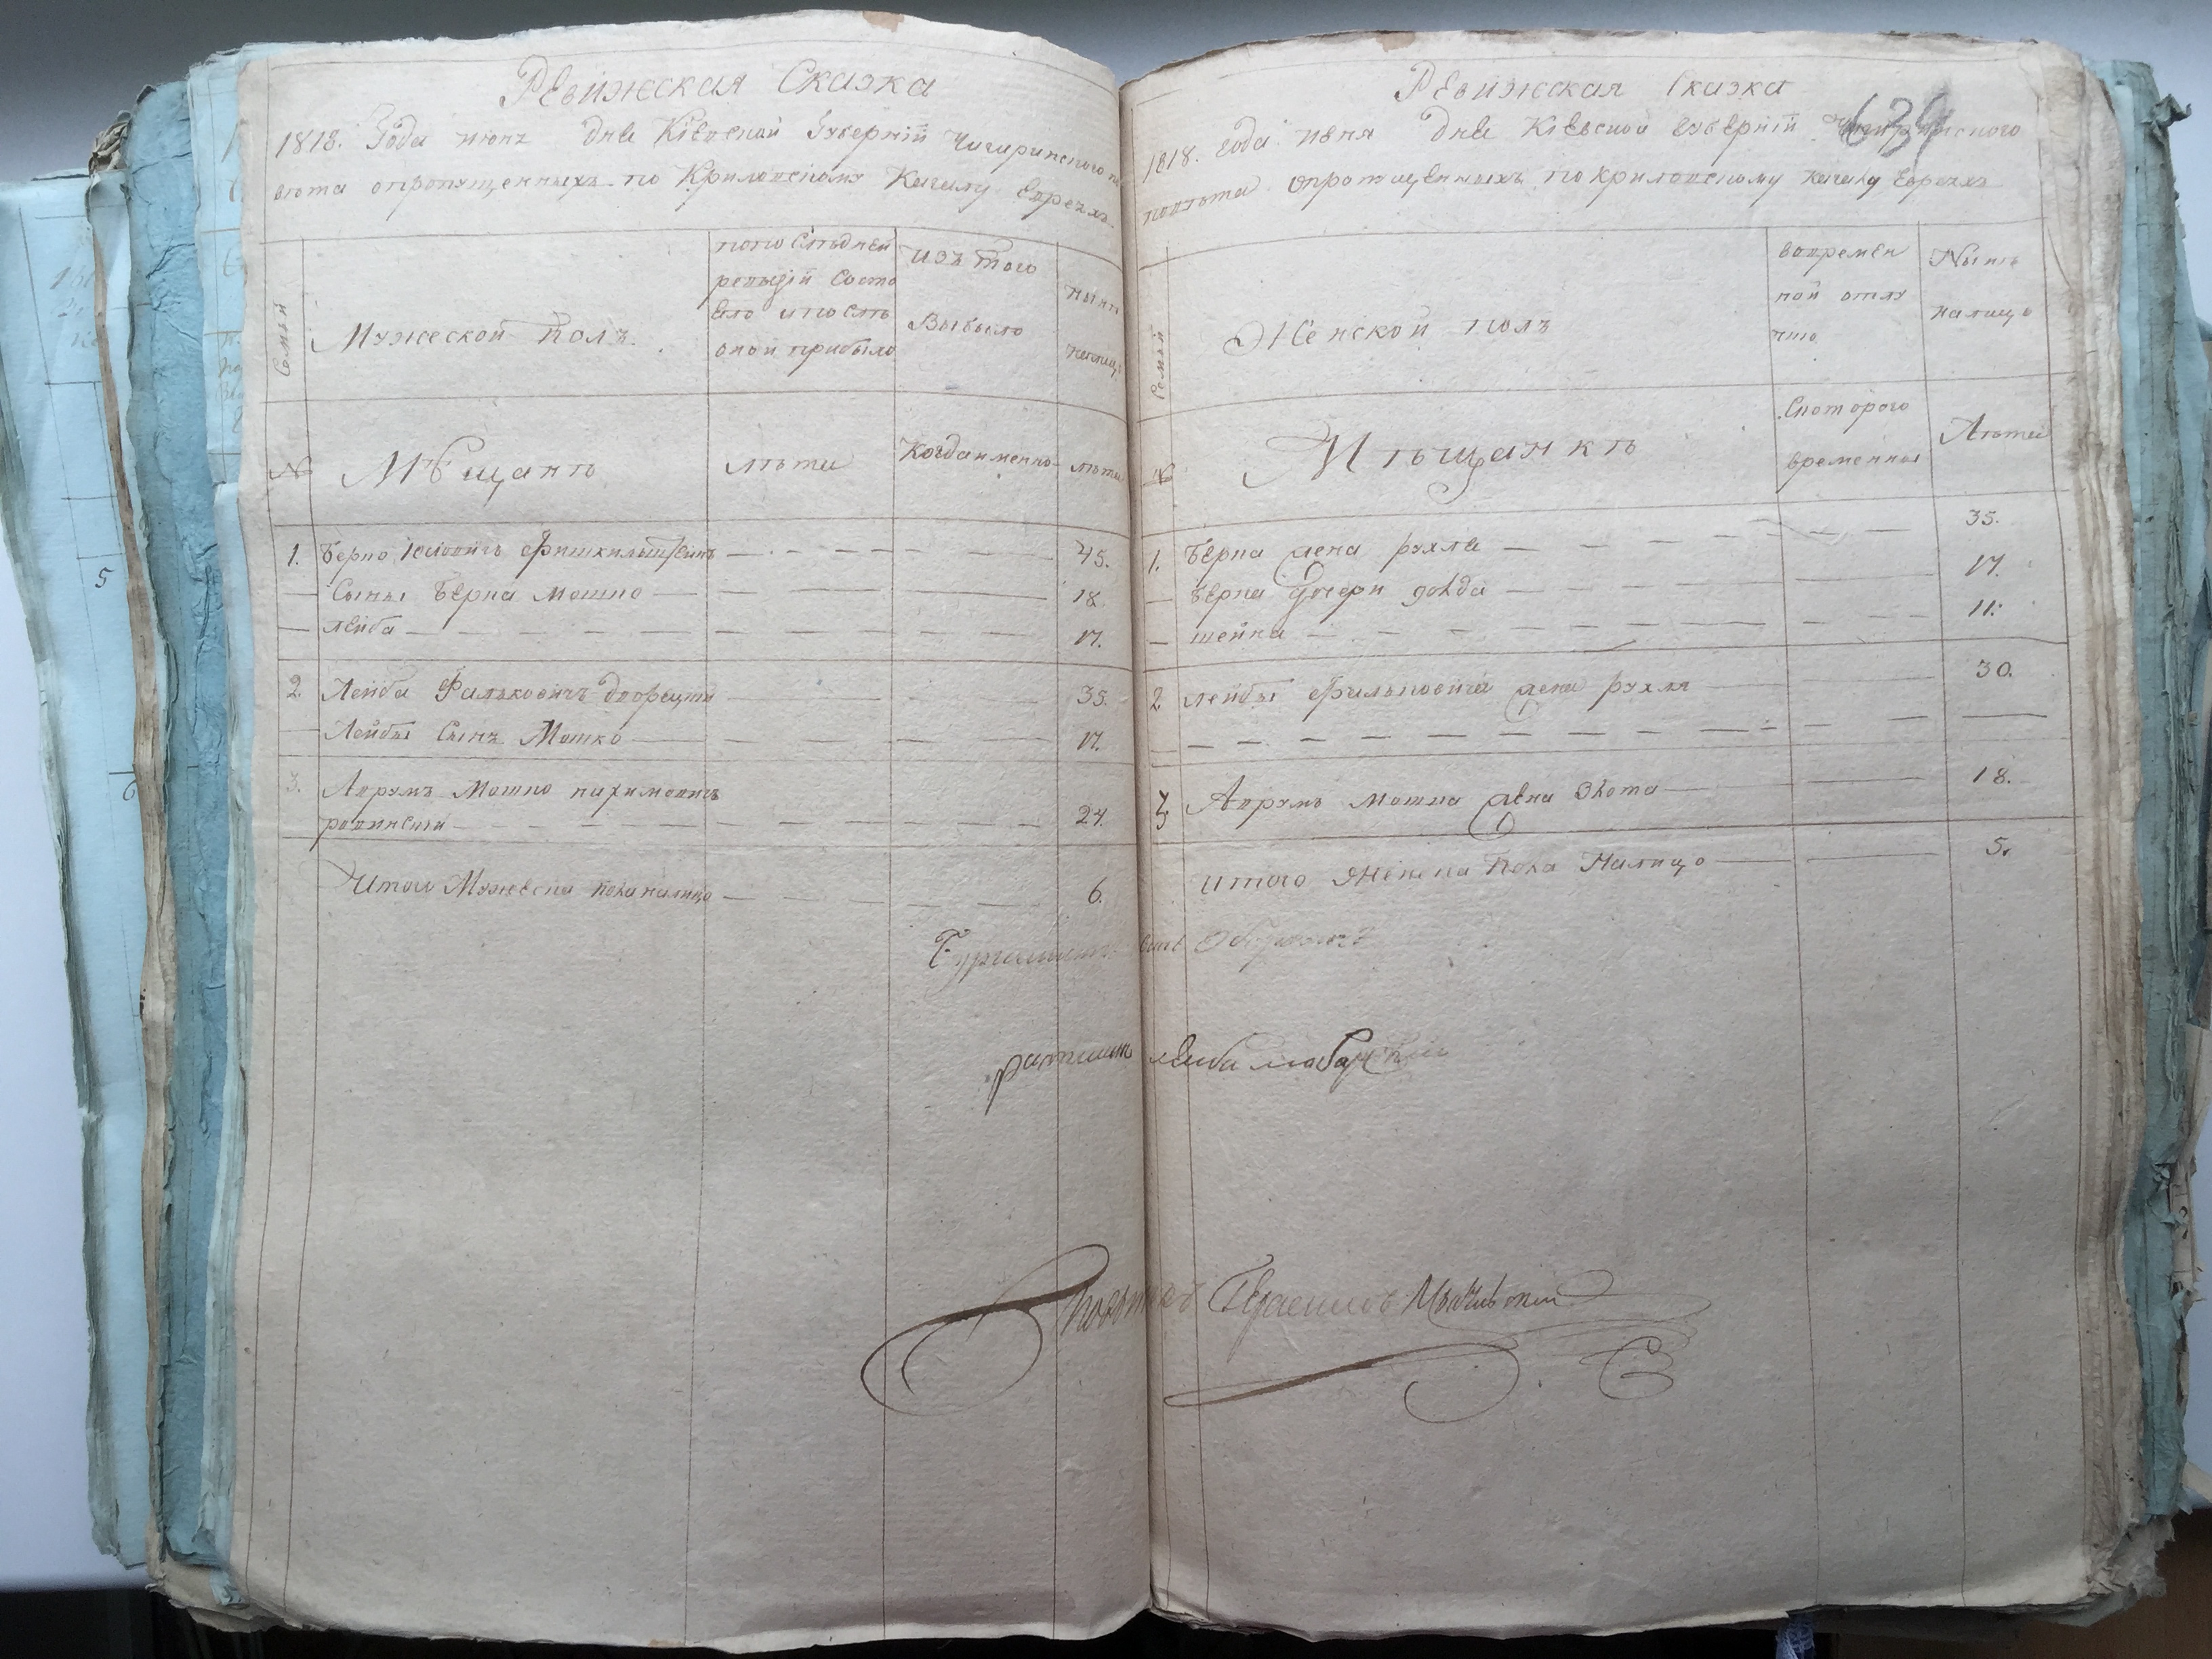 Ревижская Сказка
1818. Года июня дня Кіевской Губерній Чигиринского по
вѣта опропущенныхъ по Криловскому Кагалу Евреяхъ
Семьи
Мужеской полъ.
попослѣдней
ревизій состо
яло ипослѣ
оной прибыло
изъ того
Выбыло
нынѣ
налицо
№
Мѣщанѣ
лѣта
Когдаименно
лѣта
1. Берко
45.
Сыны Берка Мошко
18
Лейба
17.
2. Лейба Фальковичъ
35.
Лейбы Сынъ Мошко
17.
3. Аврумъ Мошко
24.
Итого Мужеска пола налицо
6.
Ревижская Сказка
639
1818. года июня дня Кіевской Губерній Чигиринского
повѣта опропущенныхъ по Криловскому Кагалу Евреяхъ
Семьи
Женской полъ
вовремен
ной отлу
чкѣ
Нынѣ
налицо
№
Мѣщанкѣ
Скоторого
времени
Лѣта
1. Берка жена рухля
35.
Берка дочери
17.
шейна
11.
2 лейбы Фальковича жена рухля
30.
3 Аврумъ Мошка жена
18.
Итого Женска пола Налицо
5.
ратманъ Лейба
Герасимов